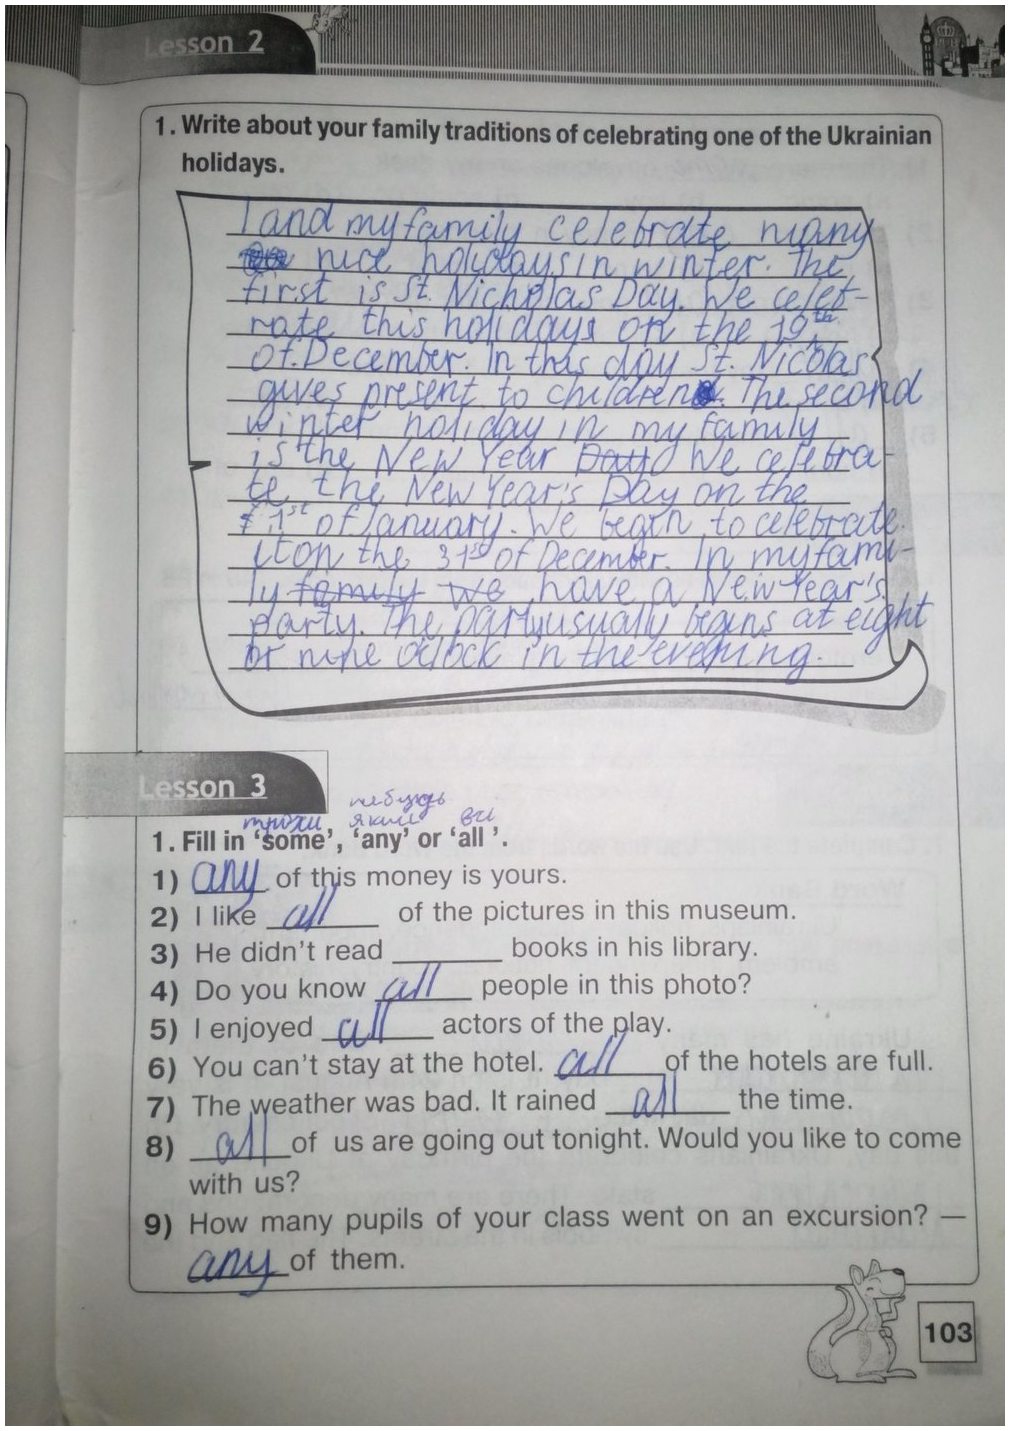 Lesson 2
1. Write about your family traditions of celebrating one of the Ukrainian
holidays.
I and my family celebrate many
nice holidays in winter. The
first is St. Nicholas Day. We celeb-
rate this holidays on the 19th
of December. In this day St. Nicolas
gives present to children. The second
winter holiday in my family
is the New Year Day We celebra-
te the New Year's Day on the
1st of January. We begin to celebrate
it on the 31st of December. In my fami-
ly family we have a New Year's
party. The party usually begins at eight
or nine o'clock in the evening.
Lesson 3
небудь
трохи який всі
1. Fill in 'some', 'any' or 'all'.
1) any of this money is yours.
2) I like all of the pictures in this museum.
3) He didn't read ______ books in his library.
4) Do you know all people in this photo?
5) I enjoyed all actors of the play.
6) You can't stay at the hotel. all of the hotels are full.
7) The weather was bad. It rained all the time.
8) all of us are going out tonight. Would you like to come
with us?
9) How many pupils of your class went on an excursion? —
any of them.
103